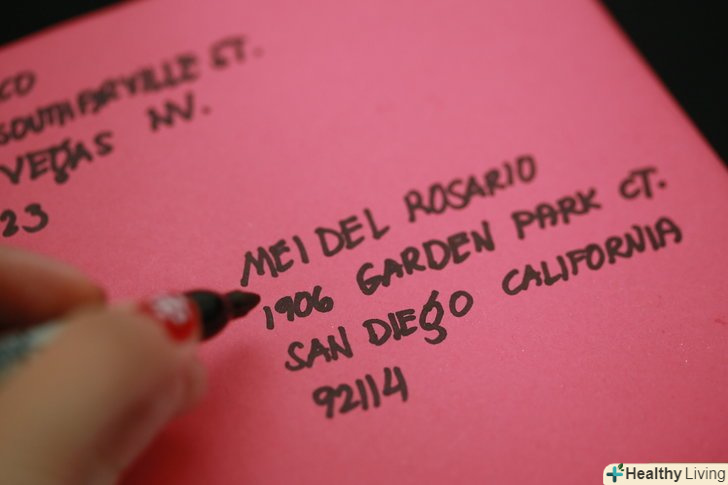 CO
ST.
VEGAS NV.
23
MEI DEL ROSARIO
1906 GARDEN PARK CT.
SAN DIEGO CALIFORNIA
92114
Healthy Living